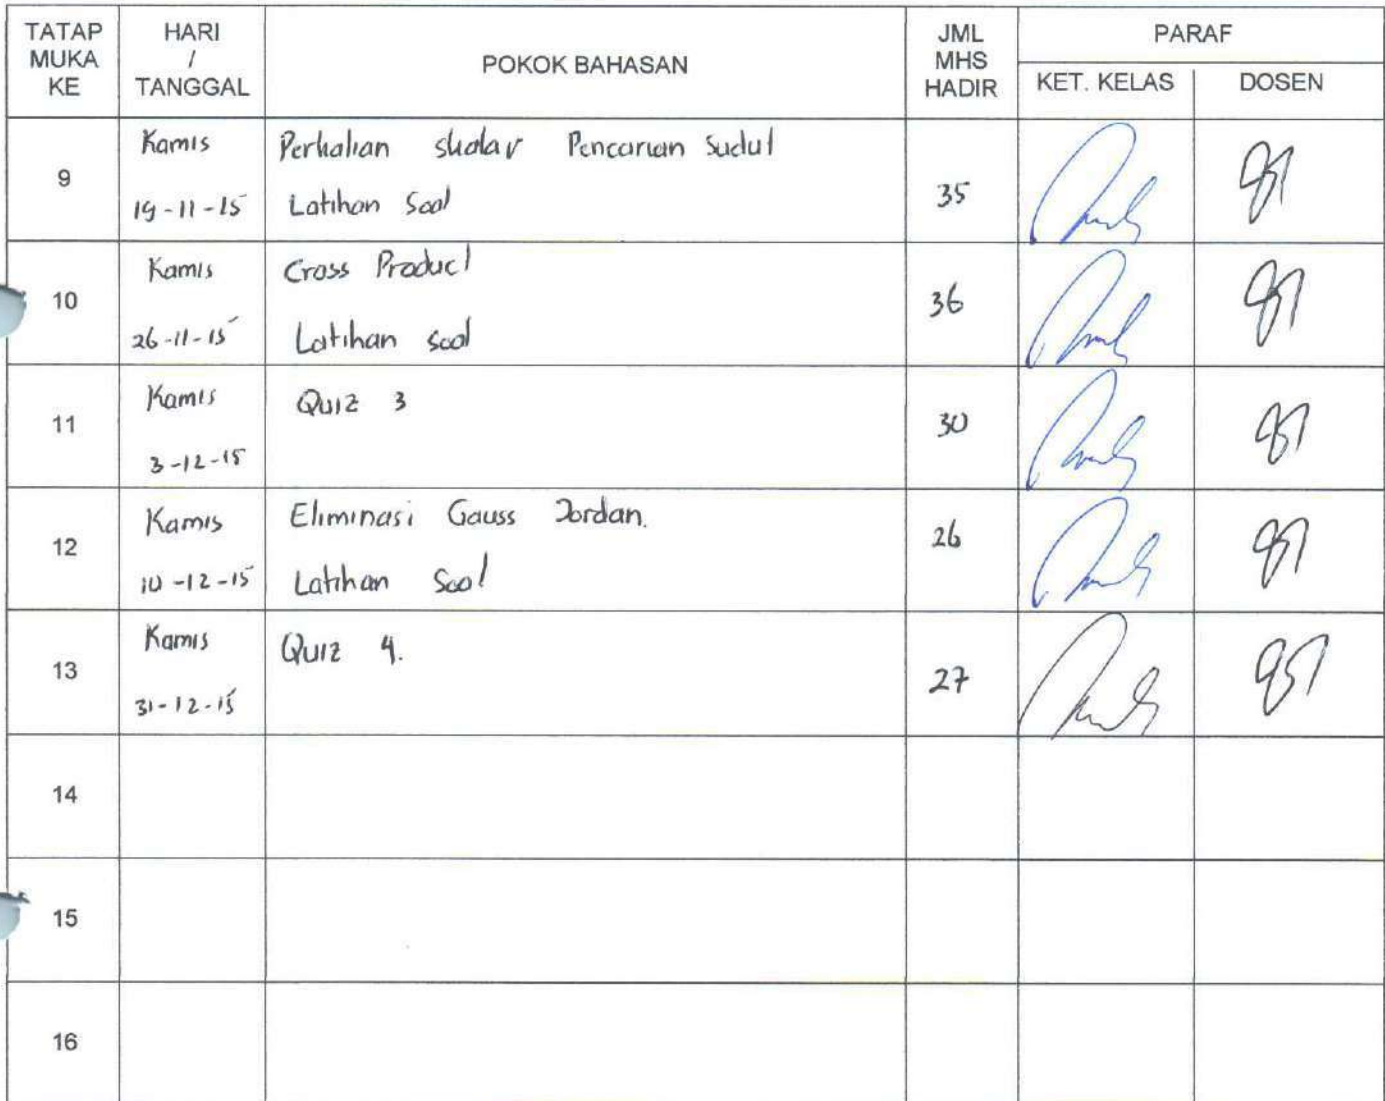 TATAP MUKA KE
HARI / TANGGAL
POKOK BAHASAN
JML MHS HADIR
PARAF
KET. KELAS
DOSEN
9
Kamis
19-11-15
Perkalian skalar Pencarian Sudut
Latihan Soal
35
10
Kamis
26-11-15
Cross Product
Latihan soal
36
11
Kamis
3-12-15
Quiz 3
30
12
Kamis
10-12-15
Eliminasi Gauss Jordan.
Latihan Soal
26
13
Kamis
31-12-15
Quiz 4.
27
14
15
16